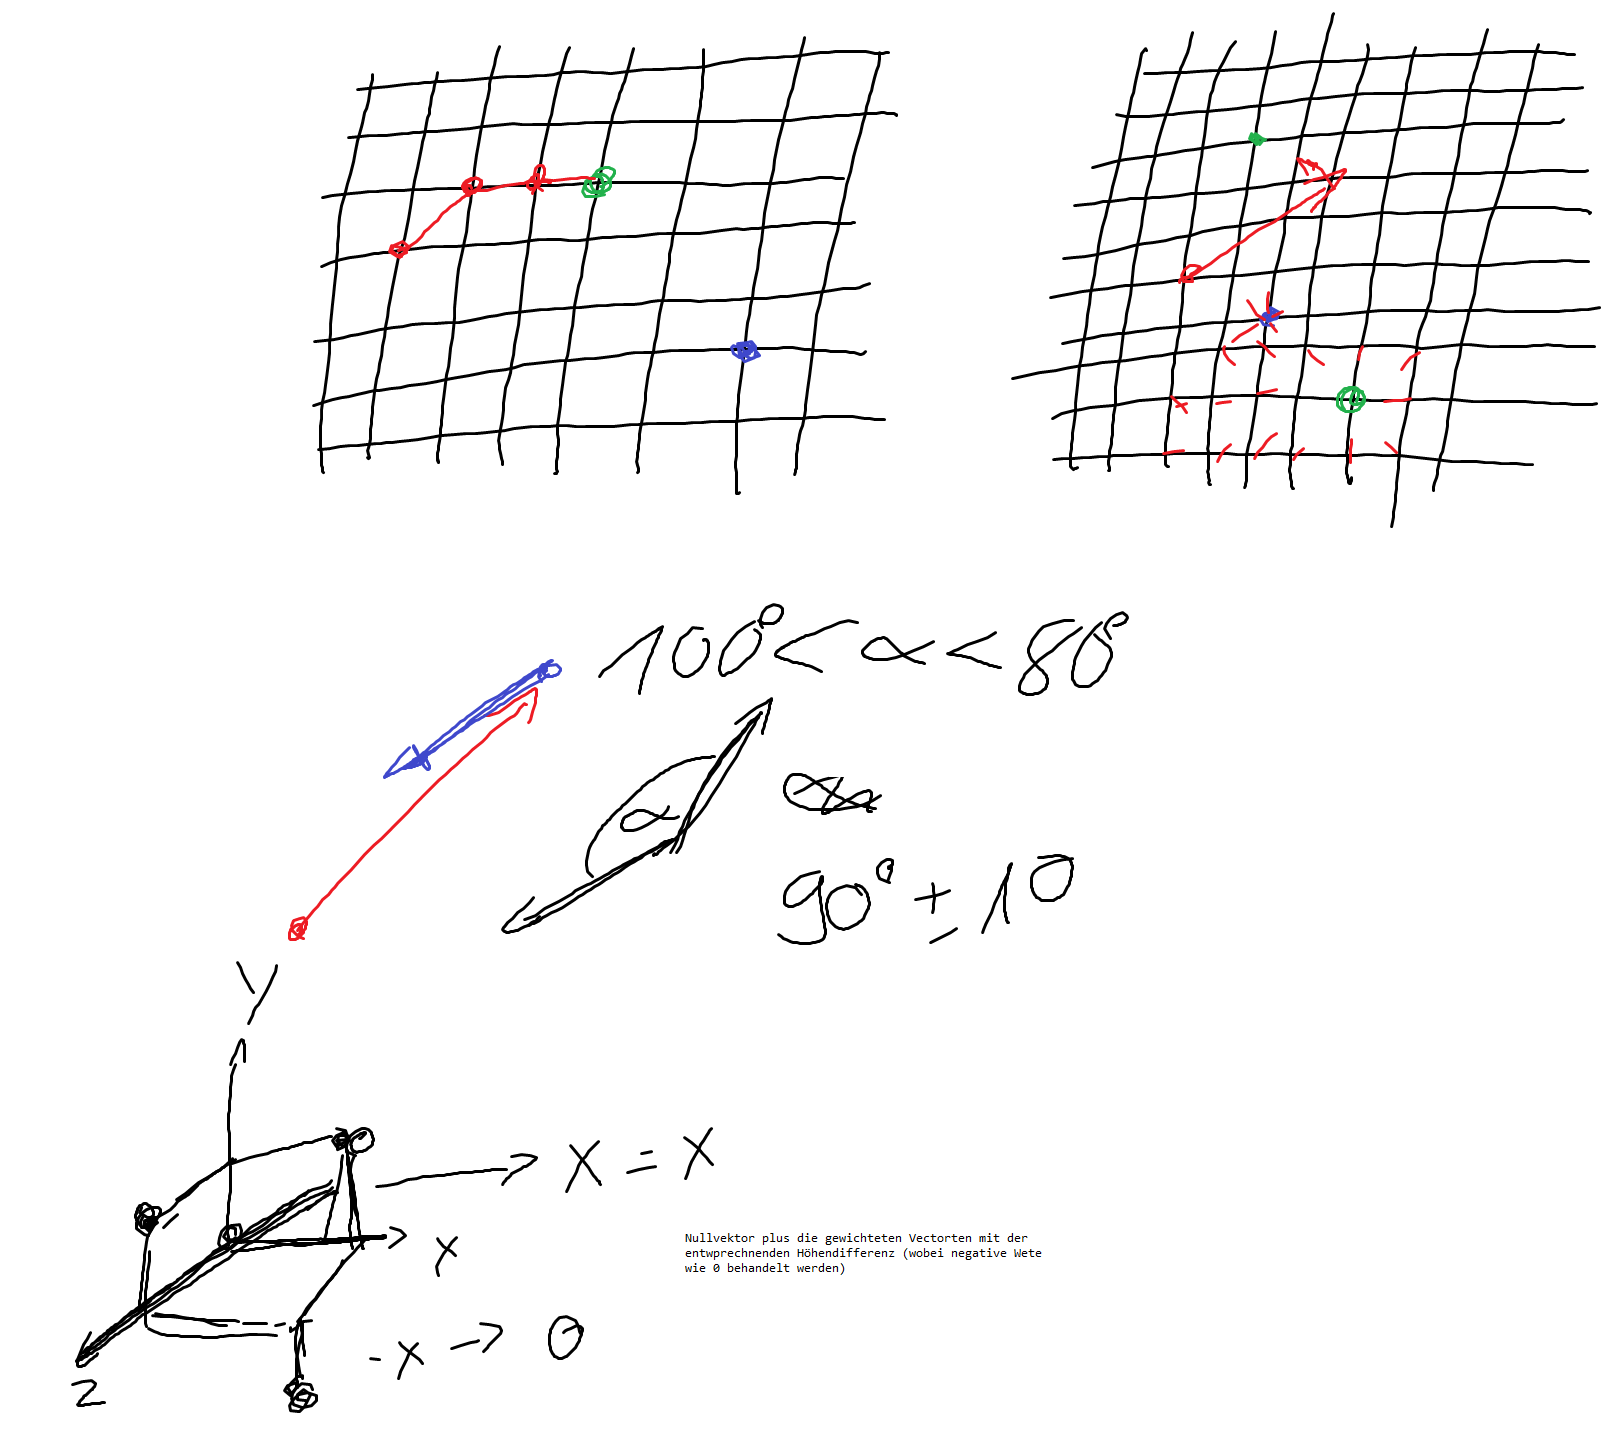 100° < α < 80°
α
90° ± 10
Y
X = X
X
Nullvektor plus die gewichteten Vectorten mit der
entwprechnenden Höhendifferenz (wobei negative Wete
wie 0 behandelt werden)
-X → 0
Z